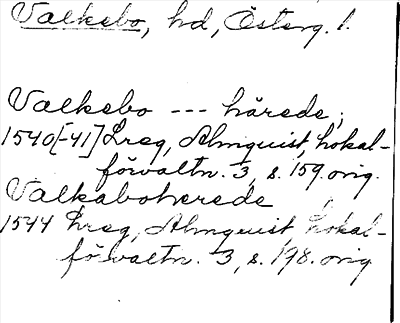 Valkebo, hd, Österg. l.
Valkebo --- härede,
1540[-41] Lreg, Almquist, Lokal-
förvaltn. 3, s. 159. orig.
Valkaboherede
1544 Lreg, Almquist, Lokal-
förvaltn. 3, s. 198. orig